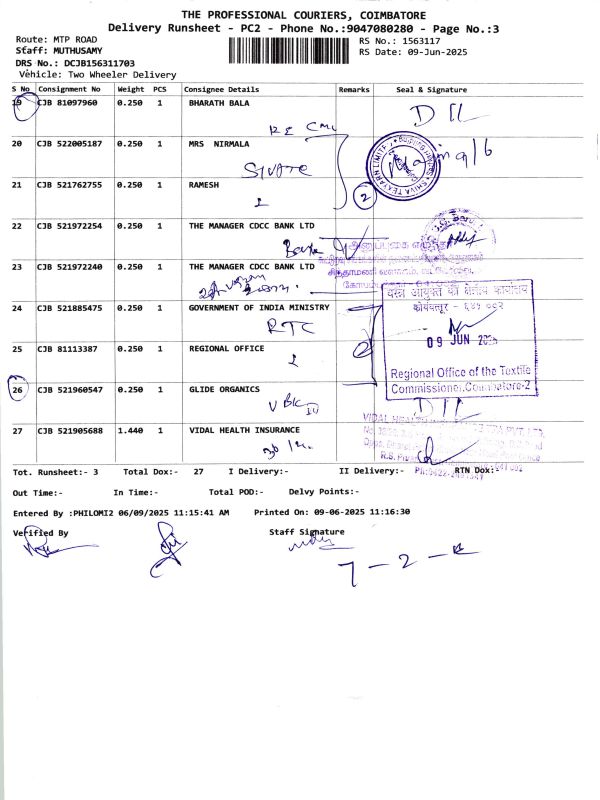 THE PROFESSIONAL COURIERS, COIMBATORE
Delivery Runsheet - PC2 - Phone No.:9047080280 - Page No.:3
Route: MTP ROAD
RS No.: 1563117
Staff: MUTHUSAMY
RS Date: 09-Jun-2025
DRS No.: DCJB156311703
Vehicle: Two Wheeler Delivery
S No Consignment No Weight PCS Consignee Details Remarks Seal & Signature
19 CJB 81097960 0.250 1 BHARATH BALA
20 CJB 522005187 0.250 1 MRS NIRMALA
SHIVA TEXYARN LIMITED
21 CJB 521762755 0.250 1 RAMESH
2
22 CJB 521972254 0.250 1 THE MANAGER CDCC BANK LTD
23 CJB 521972240 0.250 1 THE MANAGER CDCC BANK LTD
24 CJB 521885475 0.250 1 GOVERNMENT OF INDIA MINISTRY
RTC
वस्त्र आयुक्त का क्षेत्रीय कार्यालय
कोयंबत्तूर - ६४१ ००२
09 JUN 2025
25 CJB 81113387 0.250 1 REGIONAL OFFICE
2
Regional Office of the Textile
Commissioner, Coimbatore-2
26 CJB 521960547 0.250 1 GLIDE ORGANICS
27 CJB 521905688 1.440 1 VIDAL HEALTH INSURANCE
VIDAL HEALTH
Tot. Runsheet:- 3 Total Dox:- 27 I Delivery:- II Delivery:- RTN Dox:-
Out Time:- In Time:- Total POD:- Delvy Points:-
Entered By :PHILOMI2 06/09/2025 11:15:41 AM Printed On: 09-06-2025 11:16:30
Verified By Staff Signature